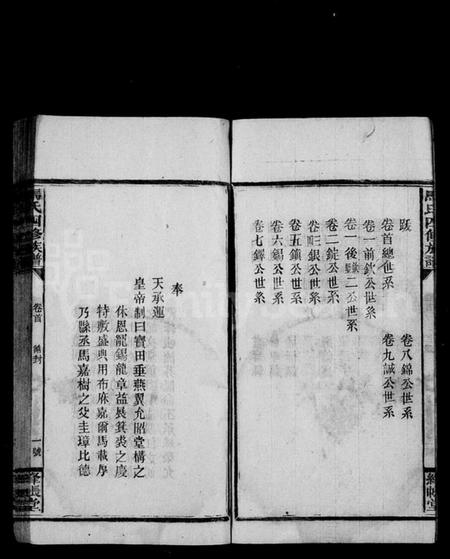 馬氏四修族譜
跋
卷首總世系
卷一前欽公世系
卷一後二公世系
卷二錠公世系
卷四銀公世系
卷五鎮公世系
卷六錫公世系
卷七鐸公世系
卷八錦公世系
卷九誠公世系
奉
天承運
皇帝制曰寶田垂燕翼允昭堂構之
休恩寵錫龍章益長箕裘之慶
特敷盛典用布麻嘉爾馬載序
乃縣丞馬嘉樹之父圭璋比德
馬氏四修族譜
卷首
一號
絳帳堂